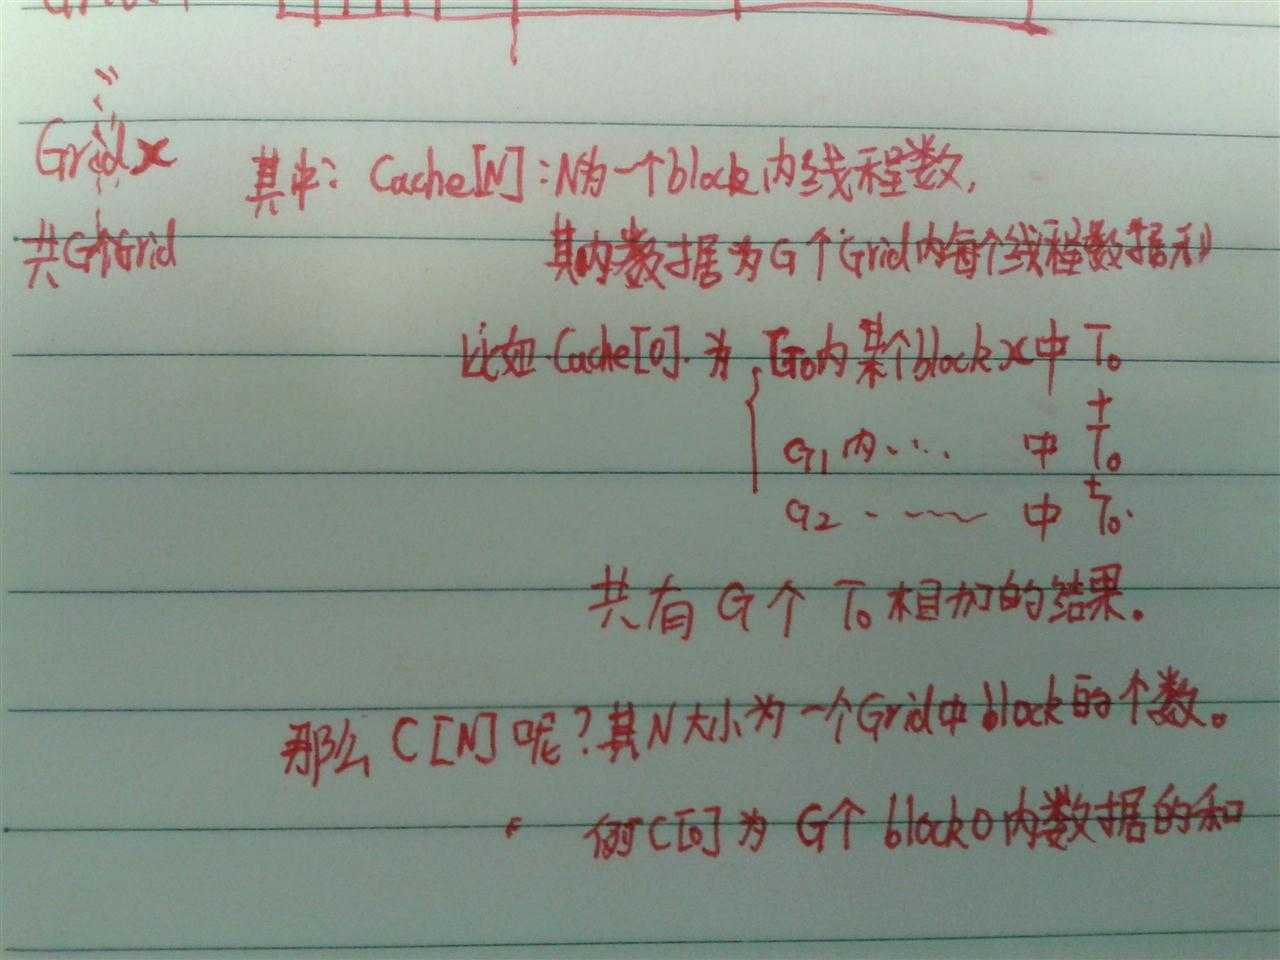 Grid x
其中: Cache[N]:N为一个block内线程数,
共G个Grid
其内数据为G个Grid内每个线程数据和
比如Cache[0]为 G0内某个block x中 T0
+
G1内..... 中 T0
+
G2 ------ 中 T0.
共有G个T0相加的结果。
那么C[N]呢?其N大小为一个Grid中block的个数。
例C[0]为 G个block0内数据的和